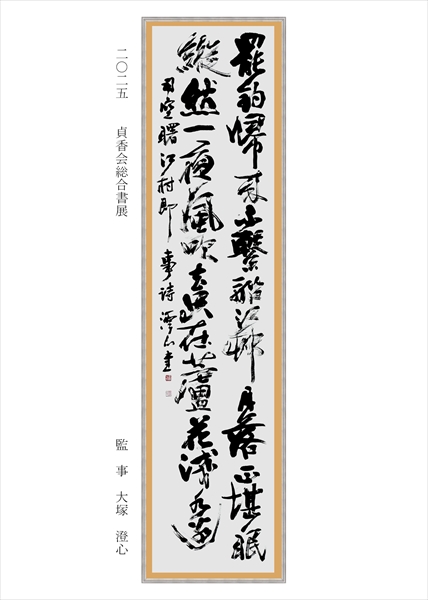 罷釣帰来不繋船江村月落正堪眠
縦然一夜風吹去只在蘆花浅水邊
司空曙江村即事詩 澄心書
二〇二五 貞香会総合書展
監事 大塚 澄心